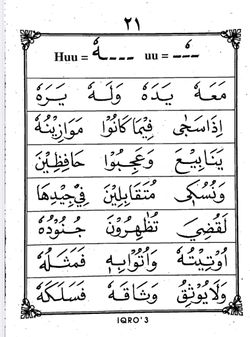 ٢١
Huu = ـهٗ uu = ـٗ
مَعَهٗ يَدَهٗ وَلَهٗ يَرَهٗ
اِذَا سَجٰى فِيْمَا كَانُوْا مَوَازِيْنُهٗ
يَنَابِيْعَ وَعَجِبُوْا حَافِظِيْنَ
وَنُسُكِىْ مُتَقَابِلِيْنَ فِىْ جِيْدِهَا
لَقُضِيَ تُظْهِرُوْنَ جُنُوْدُهٗ
اُوْتِيْتُهٗ وَاُتُوْابِهٖ فَمَثَلُهٗ
وَلَا يُوْثِقُ وَثَاقَهٗ فَسَلَكَهٗ
IQRO'3